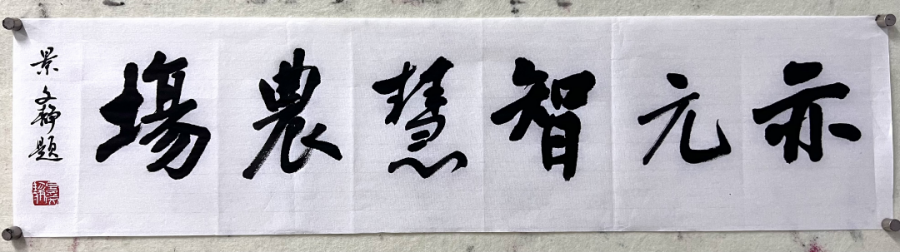 亦元智慧農場
景文静題